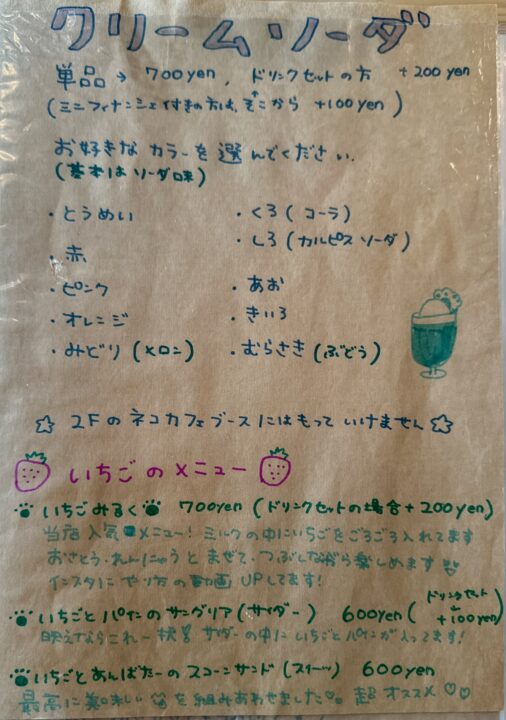 クリームソーダ
単品→700yen, ドリンクセットの方 +200yen
(ミニフィナンシェ付きの方は、そこから +100yen)
お好きなカラーを選んでください.
(基本はソーダ味)
・とうめい
・赤
・ピンク
・オレンジ
・みどり(メロン)
・くろ(コーラ)
・しろ(カルピスソーダ)
・あお
・きいろ
・むらさき(ぶどう)
☆2Fのネコカフェブースにはもっていけません☆
いちごのメニュー
いちごみるく 700yen (ドリンクセットの場合+200yen)
当店人気メニュー!ミルクの中にいちごをごろごろ入れてます
おさとう、れんにゅうとまぜて、つぶしながら楽しめます
インスタにやり方の動画UPしてます!
いちごとパインのサングリア(サイダー) 600yen(ドリンクセット +100yen)
映えならこれー サイダーの中にいちごとパインが入ってます!
いちごとあんばたーのスコーンサンド(スイーツ) 600yen
最高に美味しい を組みあわせました♡。超オススメ♡♡